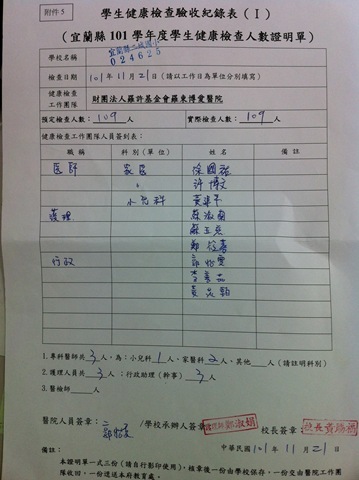 附件 5
學生健康檢查驗收紀錄表（Ⅰ）
（宜蘭縣 101 學年度學生健康檢查人數證明單）
學校名稱
024625
檢查日期 101 年 11 月 21 日（請以工作日為單位分別填寫）
健康檢查工作團隊 財團法人羅許基金會羅東博愛醫院
預定檢查人數：109 人 實際檢查人數：109 人
健康檢查工作團隊人員簽到表：
職稱 科別(單位) 姓名 備註
医師 家医 徐國
許博文
小兒科 黃
護理
行政
1.專科醫師共 3 人，為：小兒科 1 人、家醫科 2 人、其他 人（請註明科別）
2.護理人員共 3 人；行政助理（幹事） 3 人
3.醫檢師 人
醫院人員簽章： /學校承辦人簽章 校長簽章：
備註： 中華民國 101 年 11 月 21 日
本證明單一式三份（請自行影印使用），核章後一份由學校保存，一份交由醫院工作團
隊收回，一份逕送本府教育處。